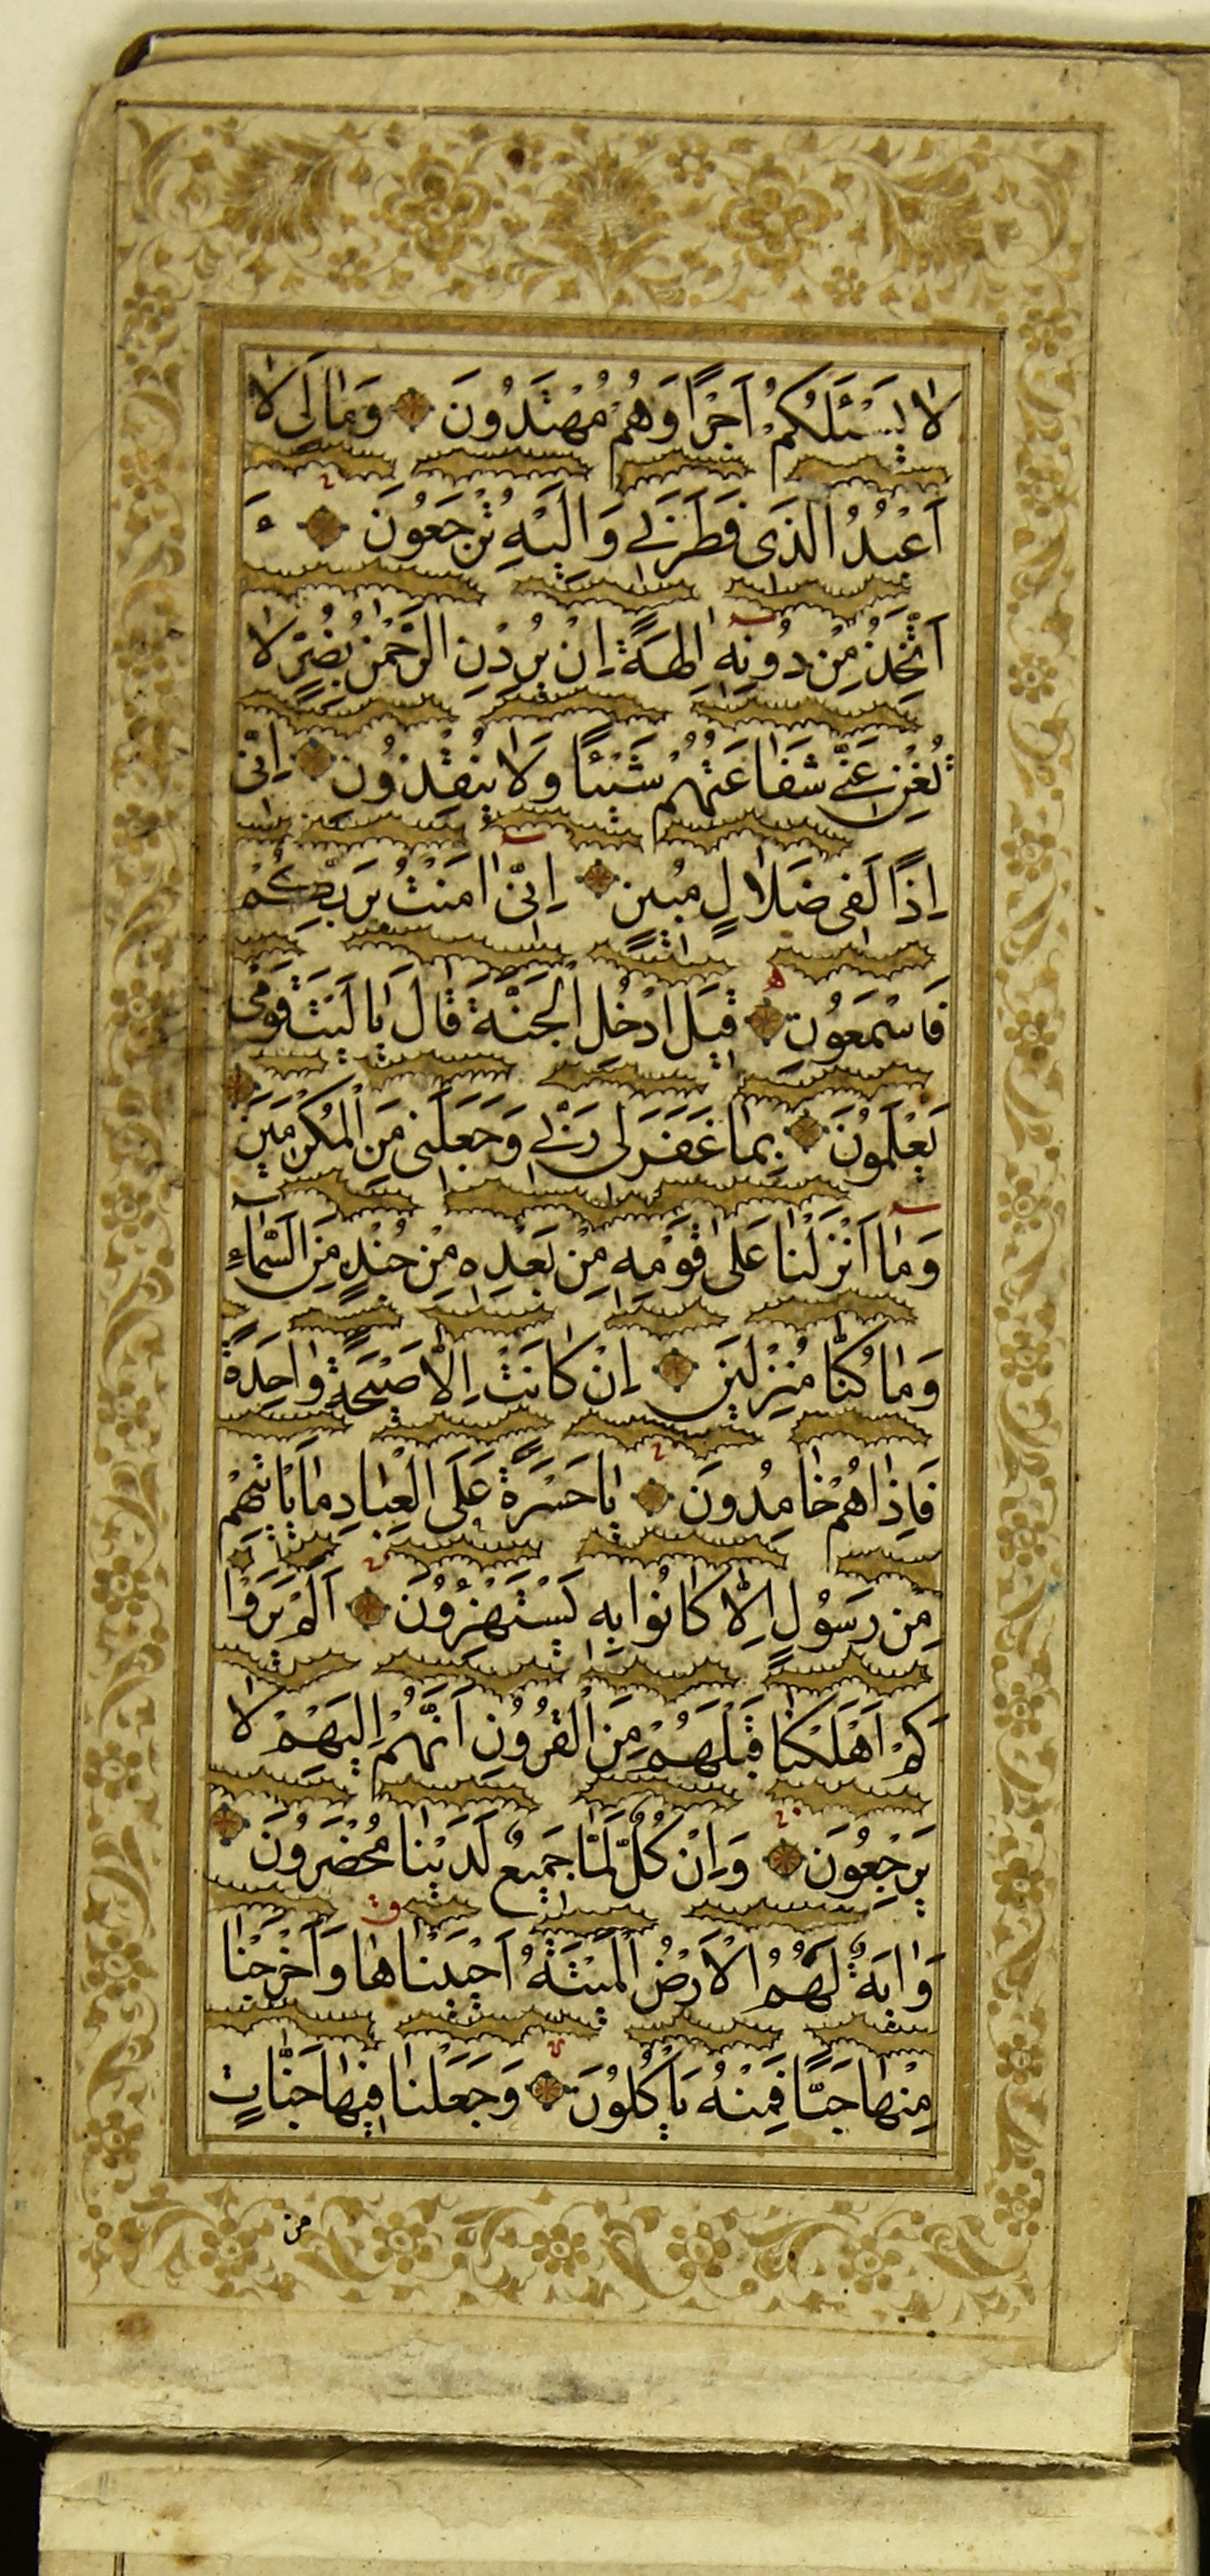 لا يَسْئَلُكُمْ اَجْرًا وَهُمْ مُهْتَدُونَ وَمٰا لِىَ لا
اَعْبُدُ الَّذى فَطَرَنى وَاِلَيْهِ تُرْجَعُونَ ءَ
اَتَّخِذُ مِنْ دُونِهِ اٰلِهَةً اِنْ يُرِدْنِ الرَّحْمٰنُ بِضُرٍّ لا
تُغْنِ عَنّى شَفٰاعَتُهُمْ شَيْئًا وَلا يُنْقِذُونِ اِنّى
اِذًا لَفى ضَلالٍ مُبينٍ اِنّى اٰمَنْتُ بِرَبِّكُمْ
فَاسْمَعُونِ قيلَ ادْخُلِ الْجَنَّةَ قٰالَ يٰا لَيْتَ قَوْمى
يَعْلَمُونَ بِمٰا غَفَرَلى رَبّى وَجَعَلَنى مِنَ الْمُكْرَمينَ
وَمٰا اَنْزَلْنٰا عَلىٰ قَوْمِهِ مِنْ بَعْدِهِ مِنْ جُنْدٍ مِنَ السَّمٰاءِ
وَمٰا كُنّٰا مُنْزِلينَ اِنْ كٰانَتْ اِلّا صَيْحَةً وٰاحِدَةً
فَاِذٰا هُمْ خٰامِدُونَ يٰا حَسْرَةً عَلَى الْعِبٰادِ مٰا يَاْتيهِمْ
مِنْ رَسُولٍ اِلّا كٰانُوا بِهِ يَسْتَهْزِؤُنَ اَلَمْ يَرَوْا
كَمْ اَهْلَكْنٰا قَبْلَهُمْ مِنَ الْقُرُونِ اَنَّهُمْ اِلَيْهِمْ لا
يَرْجِعُونَ وَاِنْ كُلٌّ لَمّٰا جَميعٌ لَدَيْنٰا مُحْضَرُونَ
وَاٰيَةٌ لَهُمُ الْاَرْضُ الْمَيْتَةُ اَحْيَيْنٰاهٰا وَاَخْرَجْنٰا
مِنْهٰا حَبًّا فَمِنْهُ يَاْكُلُونَ وَجَعَلْنٰا فيهٰا جَنّٰاتٍ
من